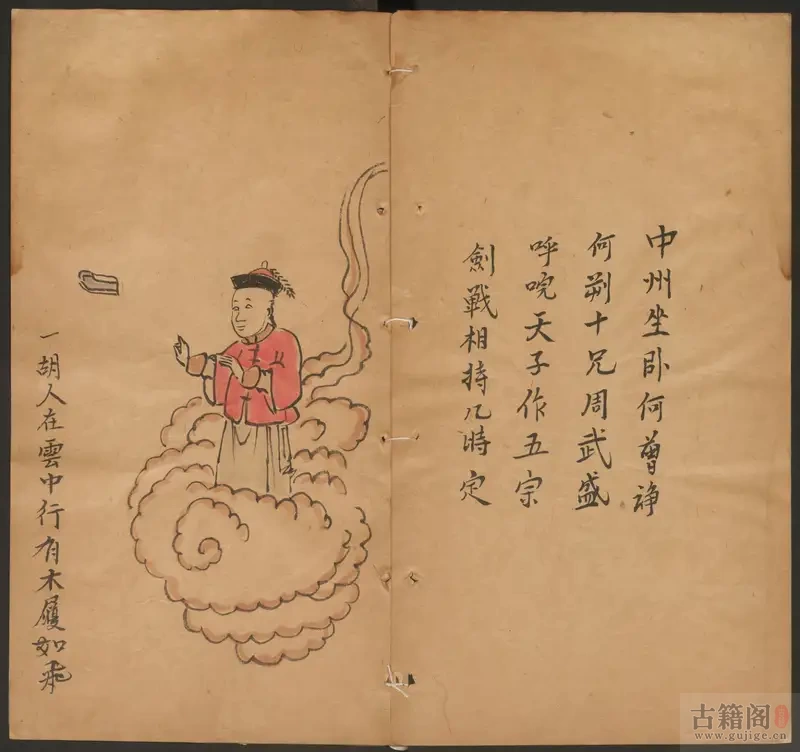 中州坐卧何曽诤
何㓨十兄周武盛
呼唍天子作五宗
劍戦相持几時定
一胡人在雲中行有木履如飛
古籍阁
www.gujige.cn